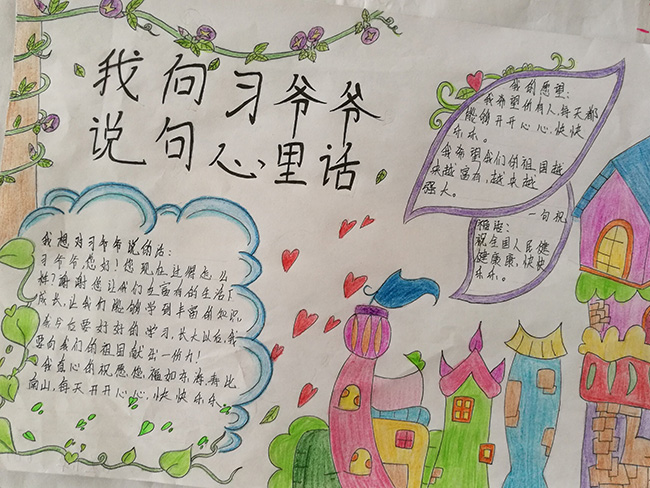 我向习爷爷
说句心里话
我想对习爷爷说的话：
习爷爷，您好！您现在过得怎么
样？谢谢您让我们在富有的生活下
成长，让我们能够学到丰富的知识
我今后要好好的学习，长大以后，我
要向我们的祖国献出一份力！
我在心里祝愿您福如东海，寿比
南山，每天开开心心，快快乐乐。
我的愿望：
我希望所有人，每天都
能够开开心心，快快
乐乐。
我希望我们的祖国越
来越富有，越来越
强大。
一句祝
福语：
祝全国人民健
健康康，快快
乐乐。